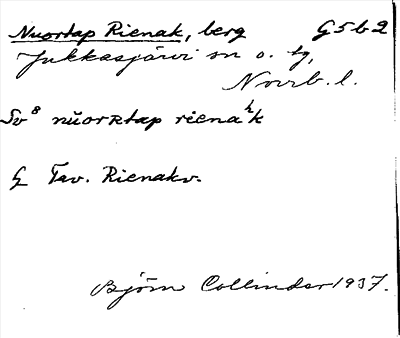 Nuortap Rienak, berg G5b2
Jukkasjärvi sn o. tg,
Norrb. l.
Sv⁸ nŭorʀtap rienaʰk
G Tav. Rienakv.
Björn Collinder 1937.